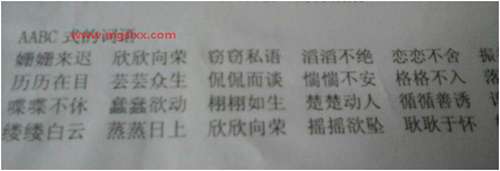 www.mgsfxx.com
AABC 式的词语
姗姗来迟 欣欣向荣 窃窃私语 滔滔不绝 恋恋不舍 振
历历在目 芸芸众生 侃侃而谈 惴惴不安 格格不入 落
喋喋不休 蠢蠢欲动 栩栩如生 楚楚动人 循循善诱
缕缕白云 蒸蒸日上 欣欣向荣 摇摇欲坠 耿耿于怀